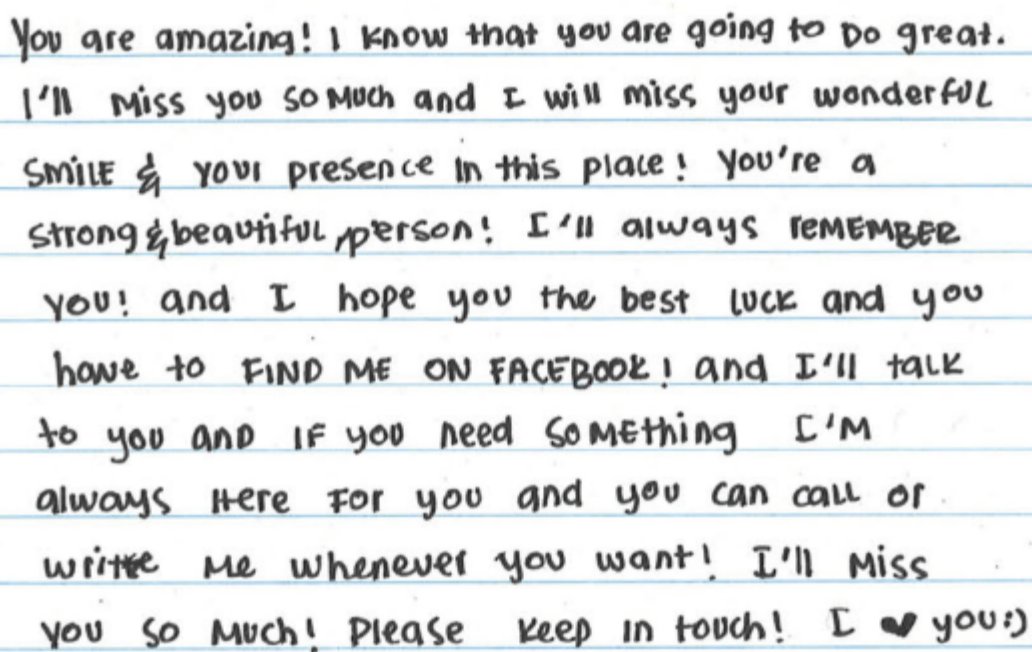 You are amazing! I know that you are going to Do great.
I'll Miss you so Much and I will miss your wonderfUL
SMiLE & YOUr presence in this place! You're a
strong & beautifuL person! I'll always reMEMBER
you! and I hope you the best LUCK and you
have to FIND ME ON FACEBOOK! and I'll taLK
to you anD IF you need SoMEthing I'M
always Here For you and you can caLL or
writte Me whenever you want! I'll Miss
you so Much! PLease Keep in touch! I ♥ you:)